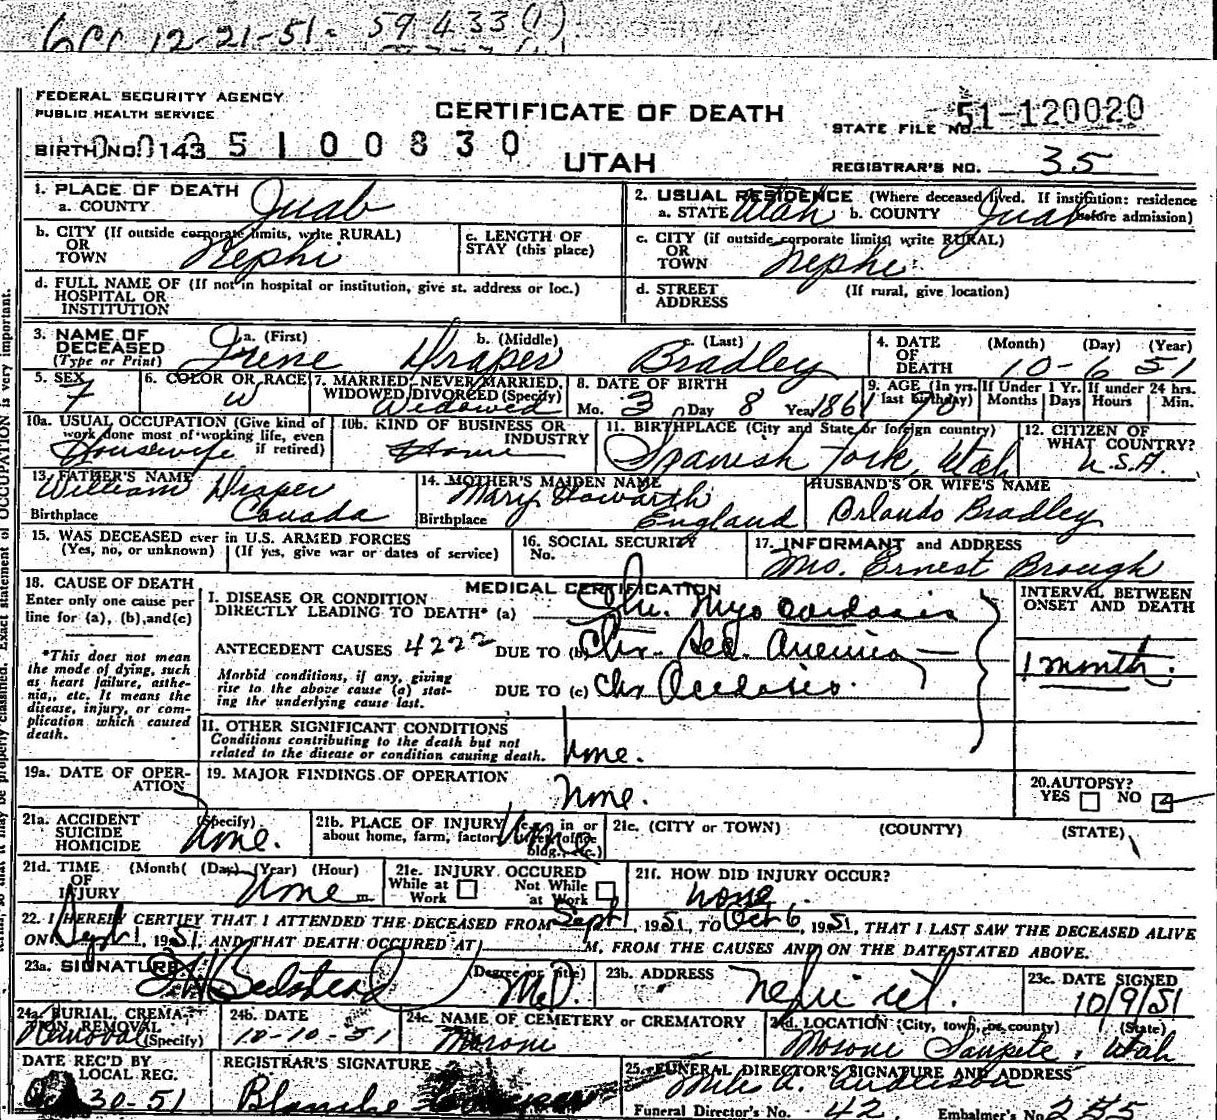 12-21-51. 59 433 (1)
FEDERAL SECURITY AGENCY
PUBLIC HEALTH SERVICE
CERTIFICATE OF DEATH
STATE FILE NO. 51-120020
BIRTH NO. 0143 5 1 0 0 8 3 0
UTAH
REGISTRAR'S NO. 35
1. PLACE OF DEATH
a. COUNTY Juab
2. USUAL RESIDENCE (Where deceased lived. If institution: residence before admission)
a. STATE Utah b. COUNTY Juab
b. CITY (If outside corporate limits, write RURAL)
OR
TOWN Nephi
c. LENGTH OF
STAY (this place)
c. CITY (if outside corporate limits, write RURAL)
OR
TOWN Nephi
d. FULL NAME OF (If not in hospital or institution, give st. address or loc.)
HOSPITAL OR
INSTITUTION
d. STREET
ADDRESS (If rural, give location)
3. NAME OF
DECEASED
(Type or Print)
a. (First) b. (Middle) c. (Last)
Irene Draper Bradley
4. DATE
OF
DEATH
(Month) (Day) (Year)
10-6 51
5. SEX
F
6. COLOR OR RACE
W
7. MARRIED, NEVER MARRIED,
WIDOWED, DIVORCED (Specify)
Widowed
8. DATE OF BIRTH
Mo. 3 Day 8 Year 1861
9. AGE (In yrs.
last birthday)
If Under 1 Yr.
Months Days
If under 24 hrs.
Hours Min.
10a. USUAL OCCUPATION (Give kind of
work done most of working life, even
if retired)
Housewife
10b. KIND OF BUSINESS OR
INDUSTRY
Home
11. BIRTHPLACE (City and State or foreign country)
Spanish Fork, Utah
12. CITIZEN OF
WHAT COUNTRY?
U.S.A.
13. FATHER'S NAME
William Draper
Birthplace Canada
14. MOTHER'S MAIDEN NAME
Mary Howarth
Birthplace England
HUSBAND'S OR WIFE'S NAME
Orlando Bradley
15. WAS DECEASED ever in U.S. ARMED FORCES
(Yes, no, or unknown) (If yes, give war or dates of service)
16. SOCIAL SECURITY
No.
17. INFORMANT and ADDRESS
Mrs. Ernest Brough
18. CAUSE OF DEATH
Enter only one cause per
line for (a), (b),and(c)
*This does not mean
the mode of dying, such
as heart failure, asthe-
nia,, etc. It means the
disease, injury, or com-
plication which caused
death.
MEDICAL CERTIFICATION
I. DISEASE OR CONDITION
DIRECTLY LEADING TO DEATH* (a) Chr. Myo cardosis
ANTECEDENT CAUSES 4222 DUE TO (b) Chr. Sec. Anemia
Morbid conditions, if any, giving
rise to the above cause (a) stat-
ing the underlying cause last.
DUE TO (c) Chr
II. OTHER SIGNIFICANT CONDITIONS
Conditions contributing to the death but not
related to the disease or condition causing death.
None.
INTERVAL BETWEEN
ONSET AND DEATH
1 month.
19a. DATE OF OPER-
ATION
19. MAJOR FINDINGS OF OPERATION
None.
20. AUTOPSY?
YES NO
21a. ACCIDENT
SUICIDE
HOMICIDE
(Specify)
None.
21b. PLACE OF INJURY (e.g., in or
about home, farm, factory, office
bldg., etc.)
None
21c. (CITY or TOWN) (COUNTY) (STATE)
21d. TIME
OF
INJURY
(Month( (Day) (Year) (Hour)
None m.
21e. INJURY OCCURED
While at
Work
Not While
at Work
21f. HOW DID INJURY OCCUR?
none
22. I HEREBY CERTIFY THAT I ATTENDED THE DECEASED FROM Sept 1, 1951, TO Oct 6, 1951, THAT I LAST SAW THE DECEASED ALIVE
ON Sept 1, 1951, AND THAT DEATH OCCURED AT M, FROM THE CAUSES AND ON THE DATE STATED ABOVE.
23a. SIGNATURE (Degree or title)
M.D.
23b. ADDRESS
Nephi Ut.
23c. DATE SIGNED
10/9/51
24a. BURIAL, CREMA-
TION, REMOVAL
(Specify)
Removal
24b. DATE
10-10-51
24c. NAME OF CEMETERY or CREMATORY
Moroni
24d. LOCATION (City, town, or county) (State)
Moroni Sanpete, Utah
DATE REC'D BY
LOCAL REG.
30-51
REGISTRAR'S SIGNATURE
Blanche
25. FUNERAL DIRECTOR'S SIGNATURE AND ADDRESS
Anderson
Funeral Director's No. 42. Embalmer's No. 255